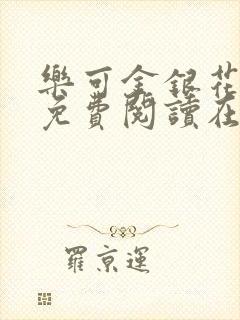 樂可金銀花
免費閱讀在
羅京運